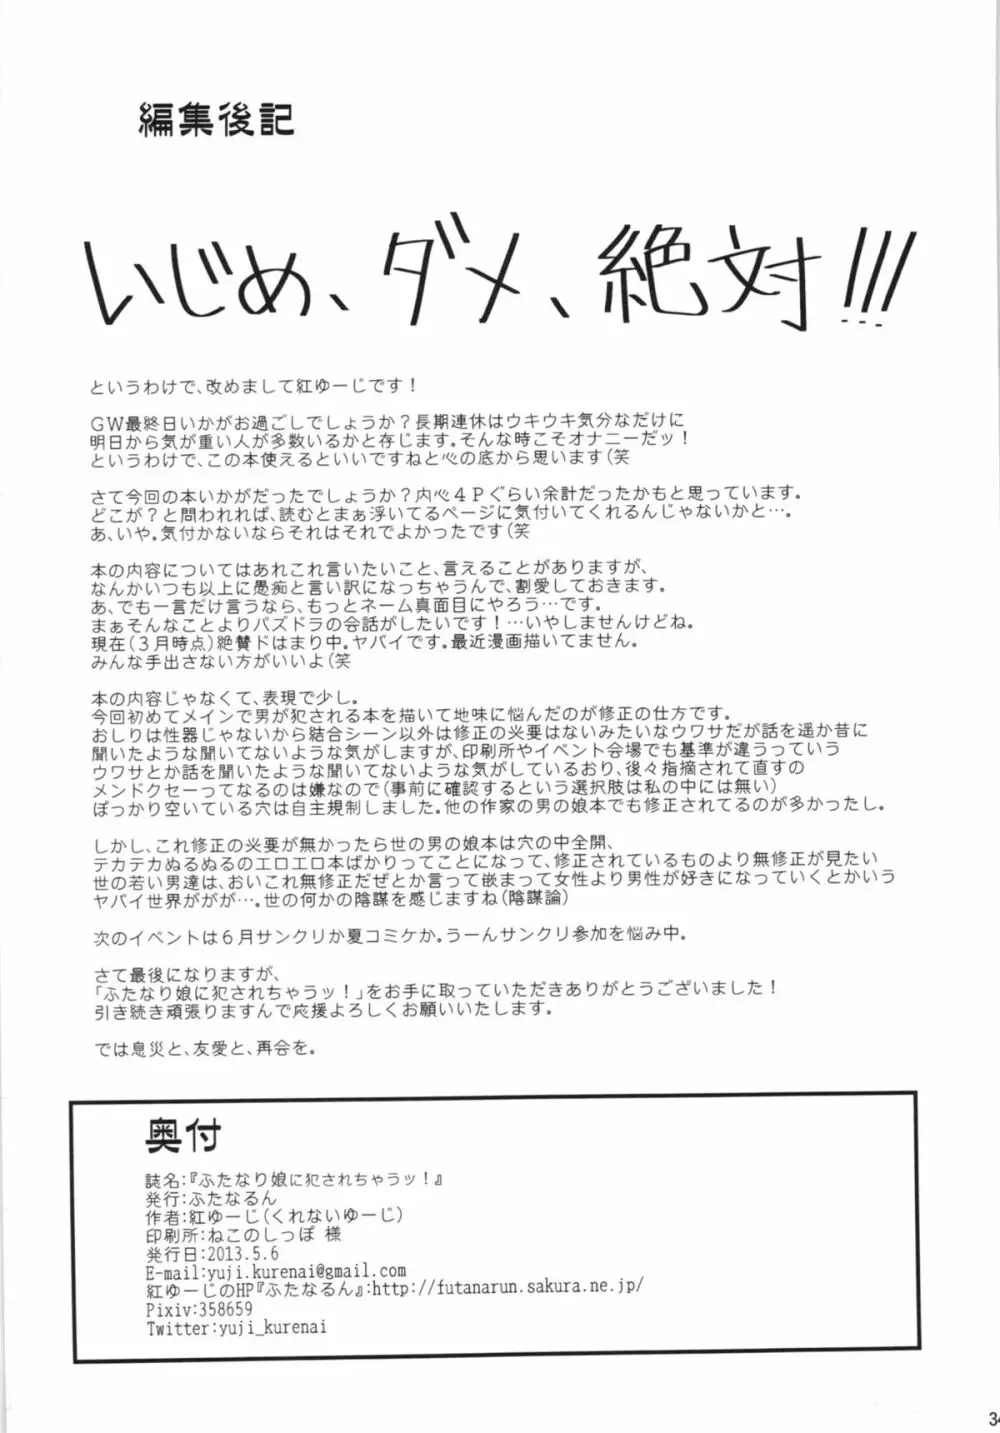 編集後記
いじめ、ダメ、絶対!!!
というわけで、改めまして紅ゆーじです!
GW最終日いかがお過ごしでしょうか?長期連休はウキウキ気分なだけに
明日から気が重い人が多数いるかと存じます。そんな時こそオナニーだッ!
というわけで、この本使えるといいですねと心の底から思います(笑
さて今回の本いかがだったでしょうか?内心4Pぐらい余計だったかもと思っています。
どこが?と問われれば、読むとまぁ浮いてるページに気付いてくれるんじゃないかと…。
あ、いや。気付かないならそれはそれでよかったです(笑
本の内容についてはあれこれ言いたいこと、言えることがありますが、
なんかいつも以上に愚痴と言い訳になっちゃうんで、割愛しておきます。
あ、でも一言だけ言うなら、もっとネーム真面目にやろう…です。
まぁそんなことよりパズドラの会話がしたいです!…いやしませんけどね。
現在(3月時点)絶賛ドはまり中。ヤバイです。最近漫画描いてません。
みんな手出さない方がいいよ(笑
本の内容じゃなくて、表現で少し。
今回初めてメインで男が犯される本を描いて地味に悩んだのが修正の仕方です。
おしりは性器じゃないから結合シーン以外は修正の必要はないみたいなウワサだが話を遥か昔に
聞いたような聞いてないような気がしますが、印刷所やイベント会場でも基準が違うっていう
ウワサとか話を聞いたような聞いてないような気がしているおり、後々指摘されて直すの
メンドクセーってなるのは嫌なので(事前に確認するという選択肢は私の中には無い)
ぽっかり空いている穴は自主規制しました。他の作家の男の娘本でも修正されてるのが多かったし。
しかし、これ修正の必要が無かったら世の男の娘本は穴の中全開、
テカテカぬるぬるのエロエロ本ばかりってことになって、修正されているものより無修正が見たい
世の若い男達は、おいこれ無修正だぜとか言って嵌まって女性より男性が好きになっていくとかいう
ヤバイ世界ががが…。世の何かの陰謀を感じますね(陰謀論)
次のイベントは6月サンクリか夏コミケか。うーんサンクリ参加を悩み中。
さて最後になりますが、
「ふたなり娘に犯されちゃうッ!」をお手に取っていただきありがとうございました!
引き続き頑張りますんで応援よろしくお願いいたします。
では息災と、友愛と、再会を。
奥付
誌名:『ふたなり娘に犯されちゃうッ!』
発行:ふたなるん
作者:紅ゆーじ(くれないゆーじ)
印刷所:ねこのしっぽ 様
発行日:2013.5.6
E-mail:yuji.kurenai@gmail.com
紅ゆーじのHP『ふたなるん』:http://futanarun.sakura.ne.jp/
Pixiv:358659
Twitter:yuji_kurenai